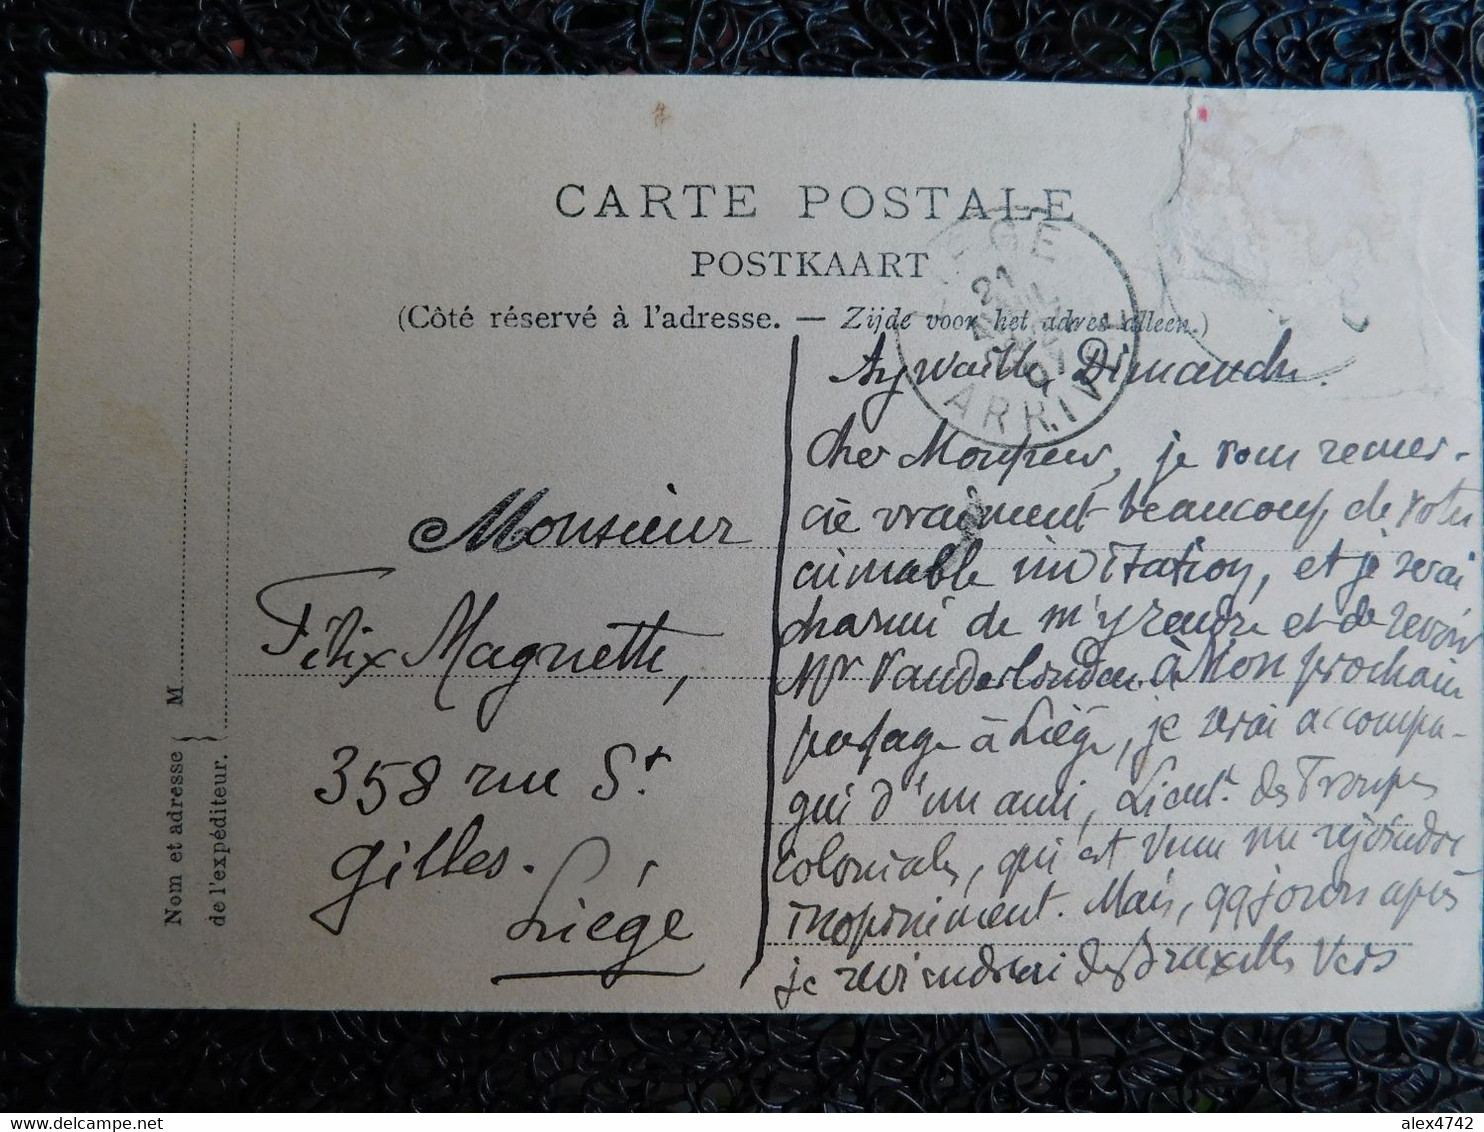 CARTE POSTALE
POSTKAART
(Côté réservé à l'adresse. — Zijde voor het adres alleen.)
LIEGE
21
AVRIL
07
ARRIVÉE
Nom et adresse } M
de l'expéditeur.
Monsieur
Félix Magnette,
358 rue St.
Gilles.
Liége
Aywaille, Dimanche.
Cher Monsieur, je vous remer-
cie vraiment beaucoup de votre
aimable invitation, et je serai
charmé de m'y rendre et de revoir
Mr Vanderlinden. à Mon prochain
passage à Liége, je serai accompa-
gné d'un ami, Lieutt. des Troupes
coloniales, qui est venu me rejoindre
inopinément. Mais, qq jours après
je reviendrai de Bruxelles vers
alex4742